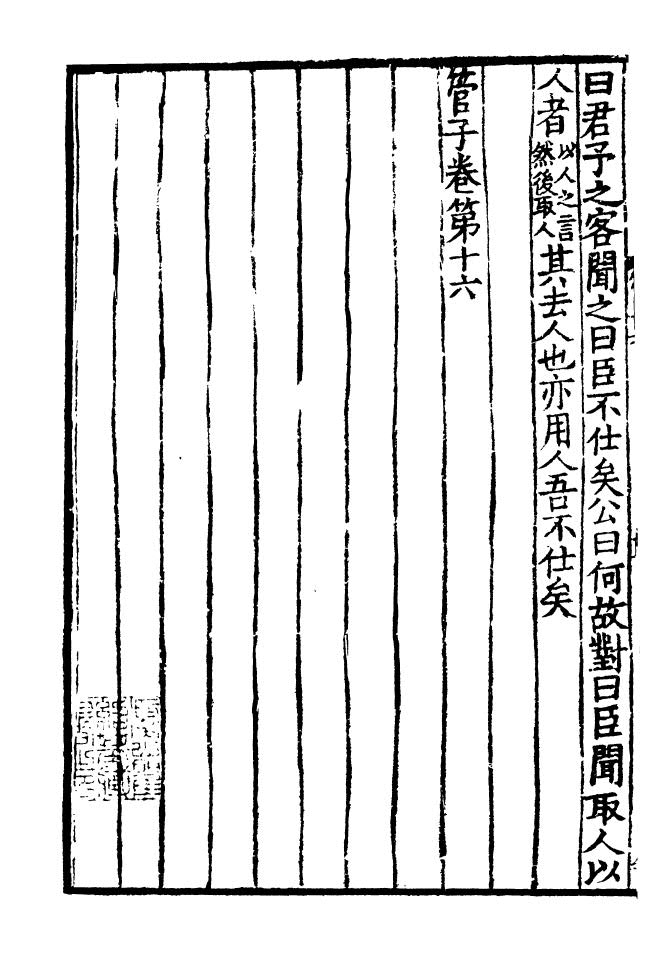 曰君予之客聞之曰臣不仕矣公曰何故對曰臣聞取人以
人者以人之言然後取人其去人也亦用人吾不仕矣
管子卷第十六